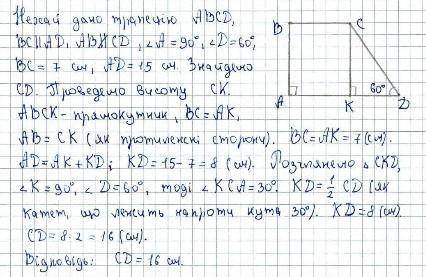 Нехай дано трапецію ABCD,
BC||AD, AB∦CD, ∠A=90°, ∠D=60°,
BC=7 см, AD=15 см. Знайдемо
CD. Проведемо висоту CK.
ABCK-прямокутник, BC=AK,
AB=CK (як протилежні сторони). BC=AK=7(см).
AD=AK+KD; KD=15-7=8 (см). Розглянемо △CKD,
∠K=90°, ∠D=60°, тоді ∠KCA=30°. KD=1/2 CD (як
катет, що лежить напроти кута 30°). KD=8(см).
CD=8·2=16(см).
Відповідь: CD=16 см.
B
C
60°
A
K
D